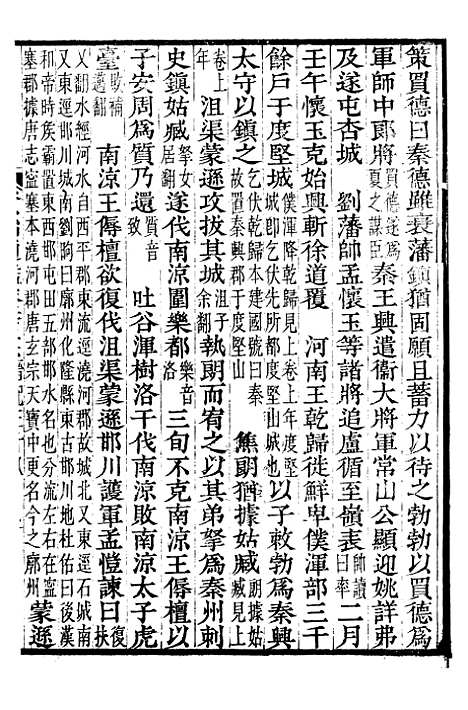 策買德曰秦德雖衰藩鎮猶固願且蓄力以待之勃勃以買德爲
軍師中郞將買德遂爲夏之謀臣秦王興遣衞大將軍常山公顯迎姚詳弗
及遂屯杏城　劉藩帥孟懷玉等諸將追盧循至嶺表帥讀曰率二月
壬午懷玉克始興斬徐道覆　河南王乾歸徙鮮卑僕渾部三千
餘戶于度堅城僕渾降乾歸見上卷上年度堅城卽乞伏先所都度堅山城也以子敕勃爲秦興
太守以鎮之乞伏乾歸本建國號曰秦故置秦興郡於度堅山　焦朗猶據姑臧朗據姑臧見上
卷上年沮渠蒙遜攻拔其城沮子余翻執朗而宥之以其弟挐爲秦州刺
史鎮姑臧挐女居翻遂伐南涼圍樂都樂音洛三旬不克南涼王傉檀以
子安周爲質乃還質音致　吐谷渾樹洛干伐南涼敗南涼太子虎
臺敗補邁翻　南涼王傉檀欲復伐沮渠蒙遜邯川護軍孟愷諫曰復扶
又翻水經河水自西平郡東流逕澆河郡故城北又東逕石城南又東逕邯川城南劉昫曰廓州化隆縣東古邯川地杜佑曰後漢
和帝時侯霸置東西邯屯田五部邯水名也分流左右在今寧塞郡據唐志寧塞本澆河郡唐玄宗天寶中更名今之廓州蒙遜